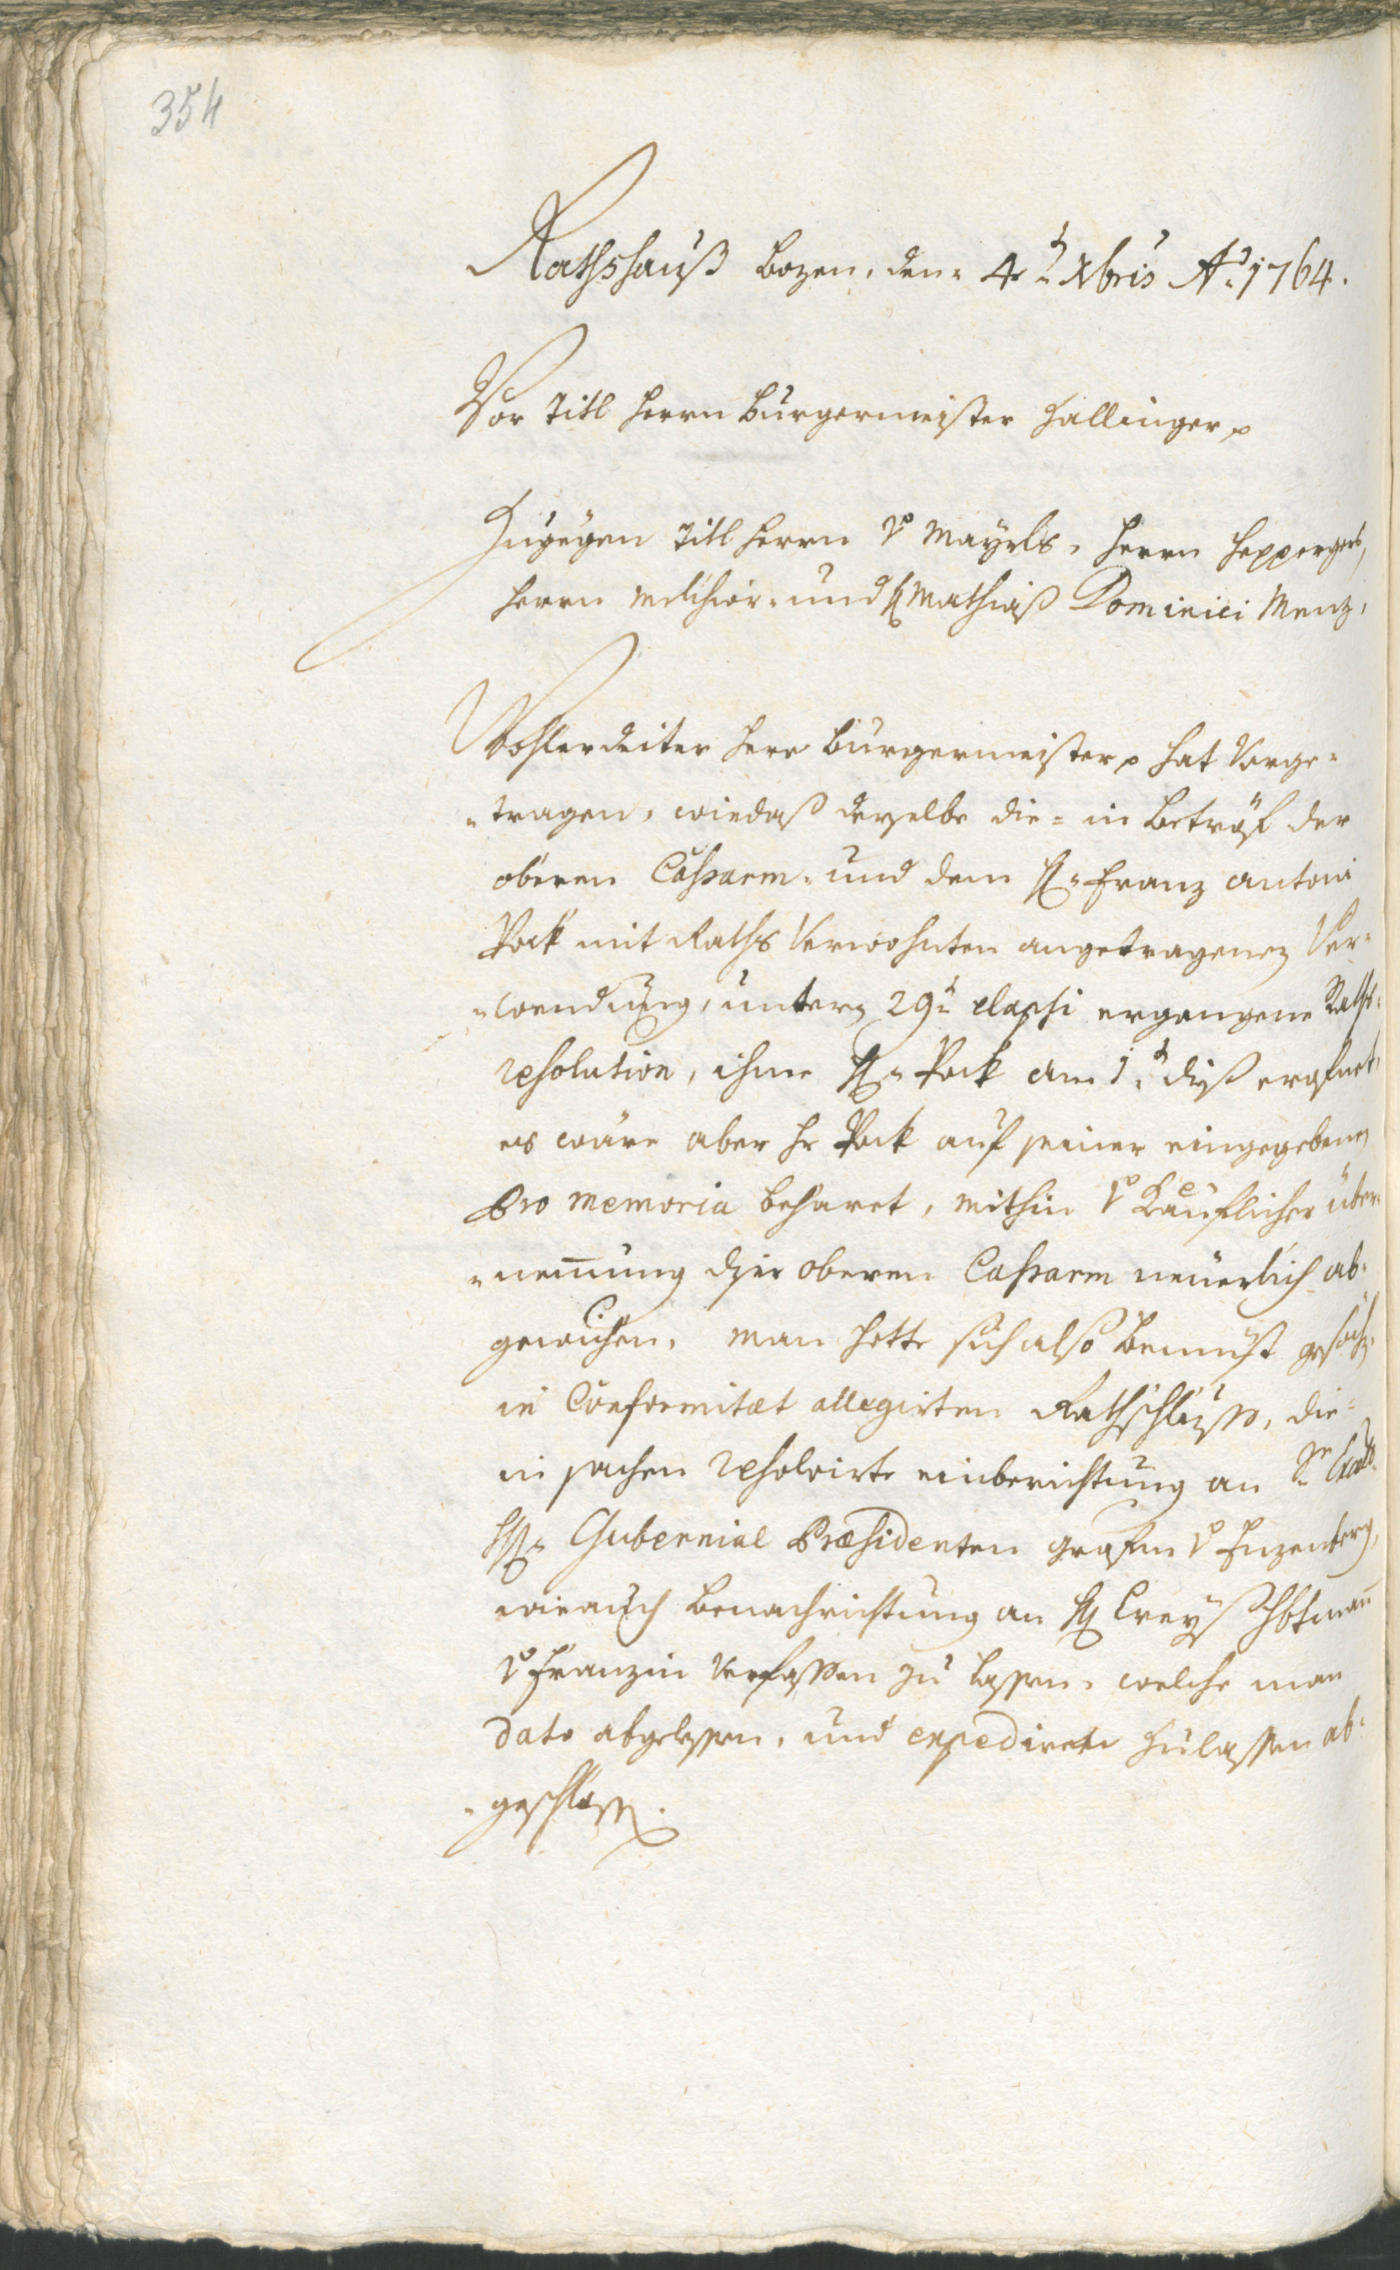 354
Rathshauß Bozen, den 4t Xbris Ao 1764.
Vor Titl Herrn Burgermeister Hallinger
Zugegen Titl Herrn v Mayrls, Herrn Heppergers,
Herrn Melchior- und H Mathiaß Dominici Menz,
Wohlerdeiter Herr Burgermeister hat Vorge-
-tragen, wiedaß derselbe die- in Betröf der
oberen Casarm- und dem H: Franz Antoni
Pock mit Raths Verwohnten angetragenen Ver-
-wendung, untern 29t elapsi ergangene Raths-
resolution, ihme H: Pock am 1t diß erofnet,
es wäre aber Hr Pock auf seiner eingegebenen
Pro memoria beharet, mithin v Käuflicher über-
-nemung diser oberen Casarm neuerlich ab-
gewichen. Man hette sich also bemüst gesöchen,
in Conformitæt allegirten Rathschluss, die-
in sachen resolvirte einberichtung an Sr Excell:
H: Gubernial Præsidenten Grafen v Enzenberg,
wieauch benachrichtung an H Creyß Hbtman
v Franzin Verfassen zu lassen, welche man
dato abgelessen, und expediren Zulassen ab-
-geschlossen.